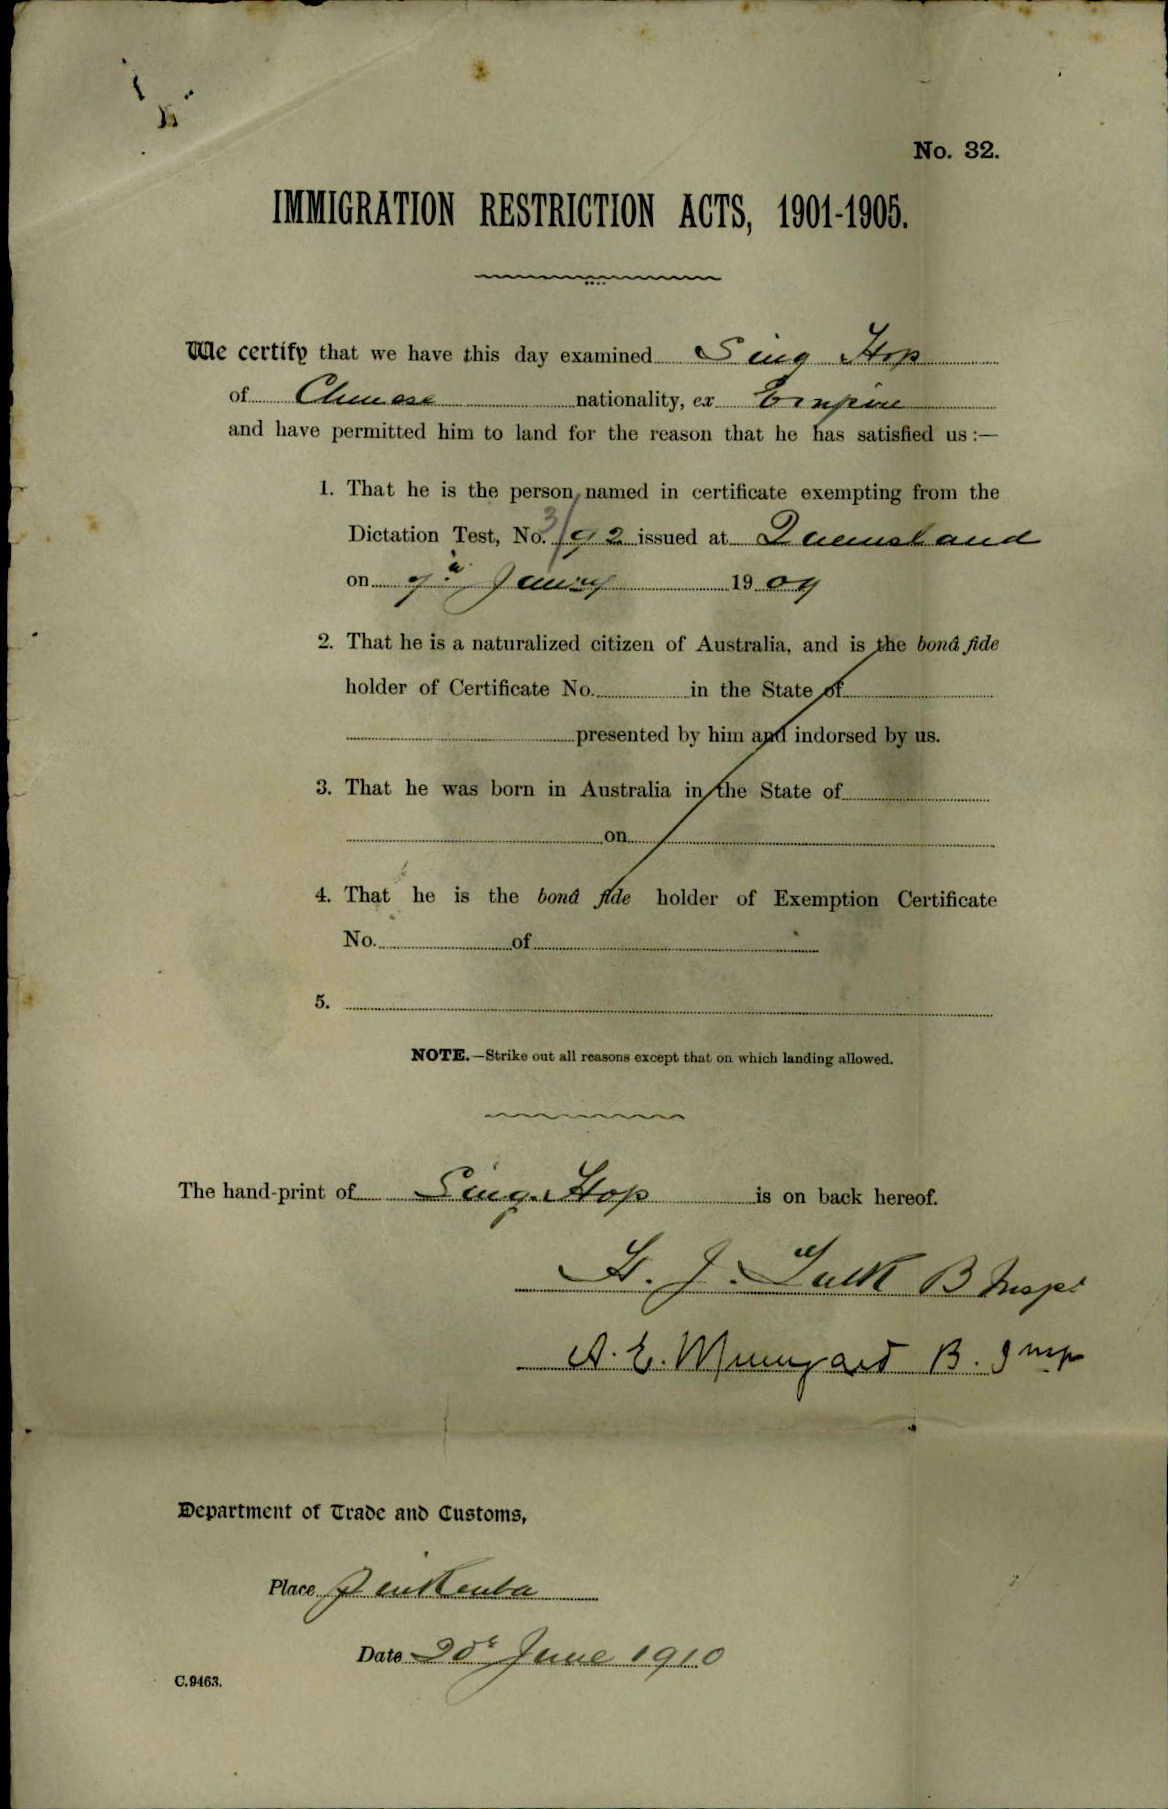 No. 32.
IMMIGRATION RESTRICTION ACTS, 1901-1905.
We certify that we have this day examined Sing Hop
of Chinese nationality, ex Empire
and have permitted him to land for the reason that he has satisfied us :—
1. That he is the person named in certificate exempting from the
Dictation Test, No. 3/92 issued at Queensland
on 19 09
2. That he is a naturalized citizen of Australia, and is the bonâ fide
holder of Certificate No. in the State of
presented by him and indorsed by us.
3. That he was born in Australia in the State of
on
4. That he is the bonâ fide holder of Exemption Certificate
No. of
5.
NOTE.—Strike out all reasons except that on which landing allowed.
The hand-print of Sing Hop is on back hereof.
J. B Inspr
A. E. B. Insp
Department of Trade and Customs,
Place Pinkenba
Date 20th June 1910
C.9463.